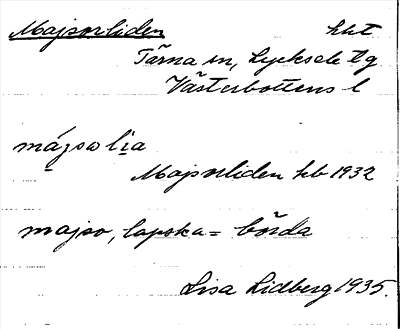 Majsorliden hkt
Tärna sn, Lycksele tg
Västerbottens l
mázsa lìa
Majsorliden kb 1932
majso, lapska = börda
Lisa Lidberg 1935.